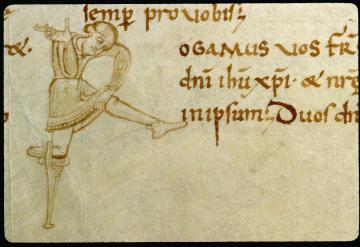 semp pro vobis:
&.
OGAMUS vos fr̄
dn̄i ih̄u xp̄i · & nr̄ę
in ipsum; Duos dn̄